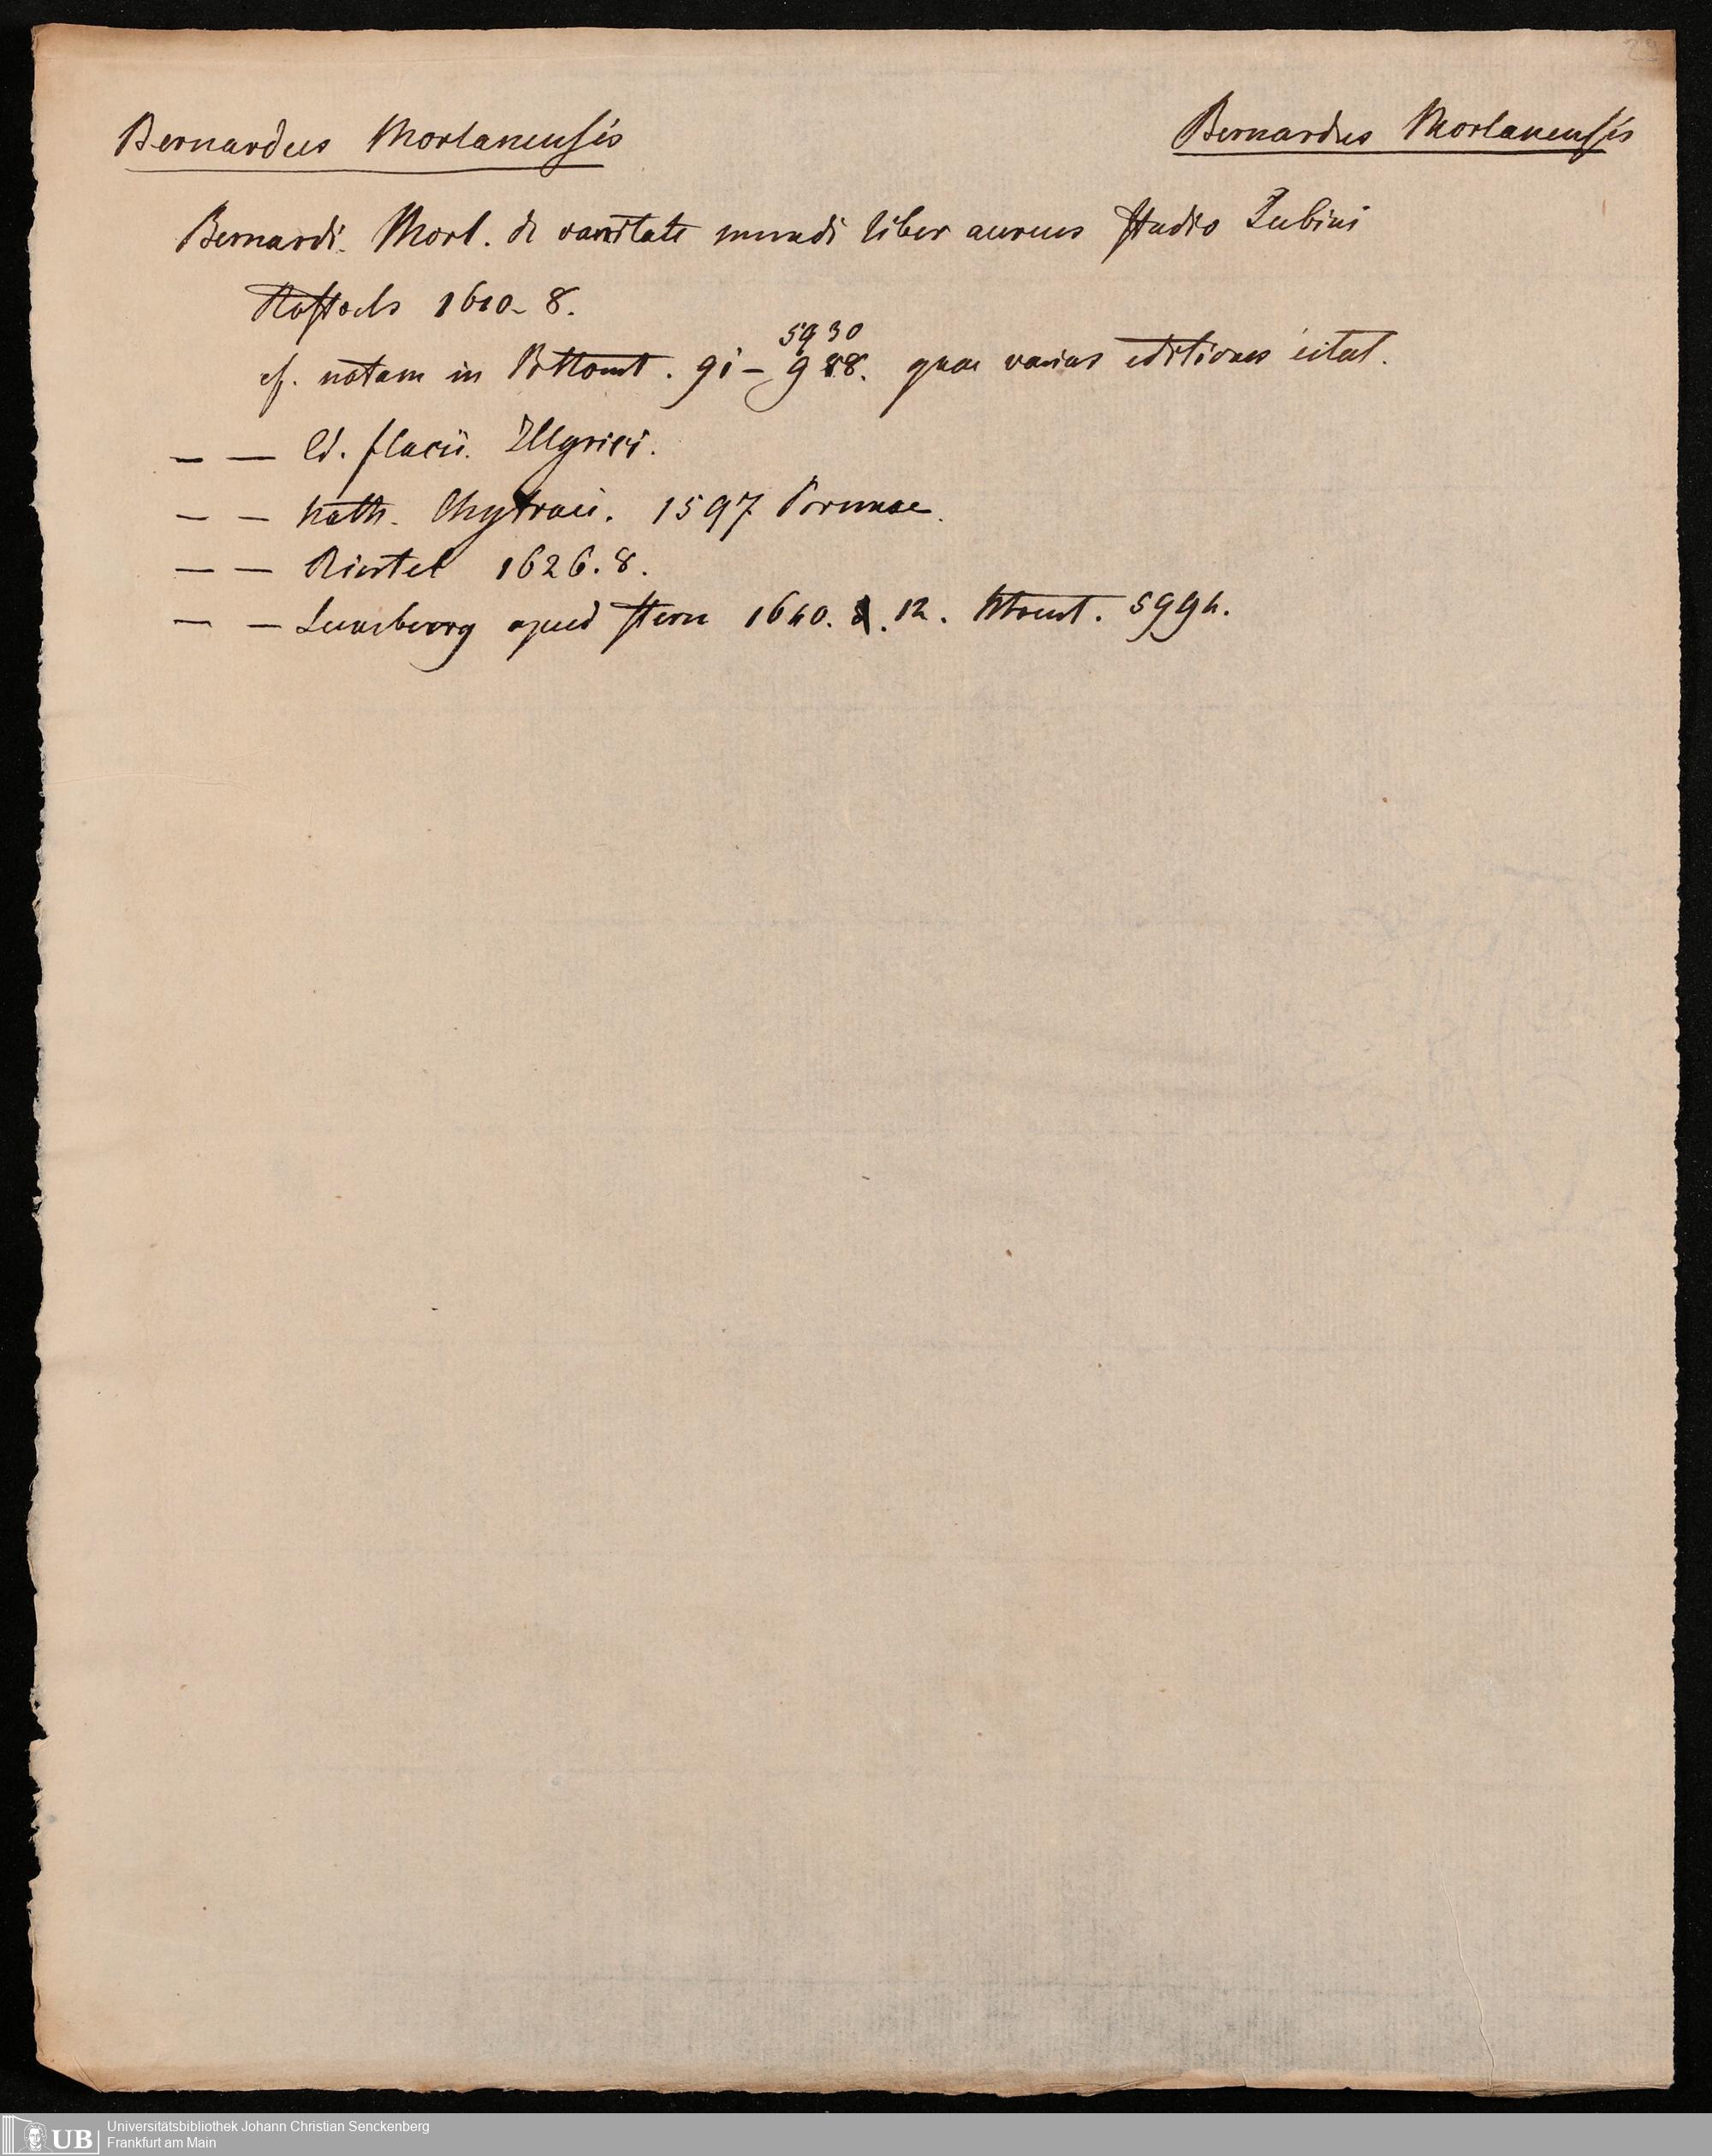 Bernardus Morlanensis
Bernardus Morlanensis
Bernardi. Morl. de vanitate mundi liber aureus studio Lubini
Rostoch 1610. 8.
5930
cf. notam in gi – 988. quae varias editiones citat.
— — Ed. flacii. Illyrici.
— — Nath. Chytraei. 1597
— — Rintel 1626. 8.
— — Luneburg apud Stern 1640. 12. 5994.
UB
Universitätsbibliothek Johann Christian Senckenberg
Frankfurt am Main